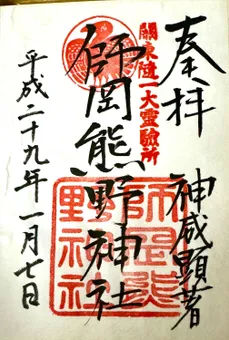 奉拝
神威顕著
關東随一大霊驗所
師岡熊野神社
師岡熊
野神社
平成二十九年一月七日